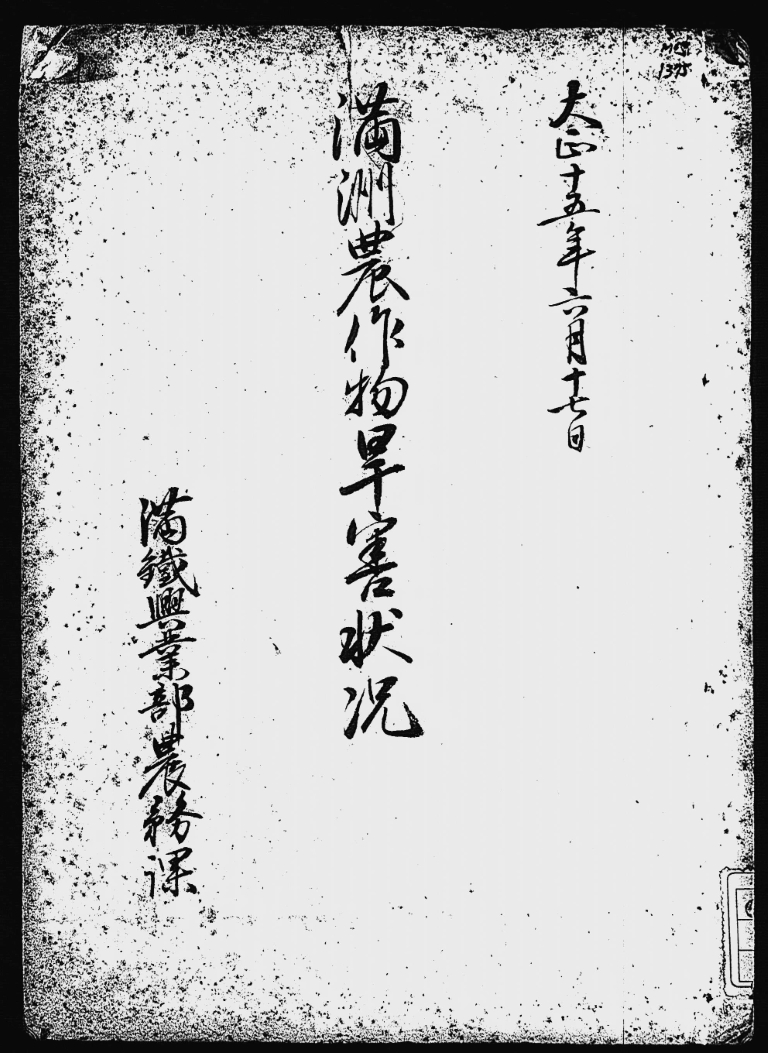 大正十五年六月十七日
満洲農作物旱害状況
満鐵興業部農務課
1375